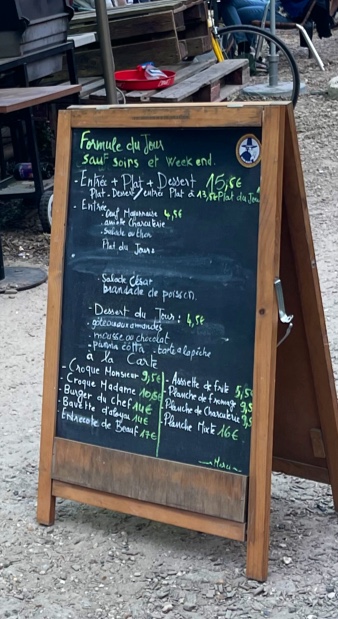 Formule du Jour
sauf soirs et Week end.
- Entrée + Plat + Dessert 15,5€
Plat - Dessert / entrée Plat à 13,5€ Plat du Jour
- Entrée
- Oeuf Mayonnaise 4,5€
- assiette Charcuterie
- salade au thon
Plat du Jour:
- Salade César
brandade de poisson.
- Dessert du Jour: 4,5€
- gâteau aux amandes
- mousse au chocolat
- panna cotta - tarte a la pêche
à la Carte
- Croque Monsieur 9,5€
- Croque Madame 10,5€
- Burger du chef 14€
- Bavette d'aloyau 14€
- Entrecote de Boeuf 17€
- Assiette de frite 5,5€
- Planche de fromage 9,5
- Planche de Charcuterie 9,5
- Planche Mixte 16€